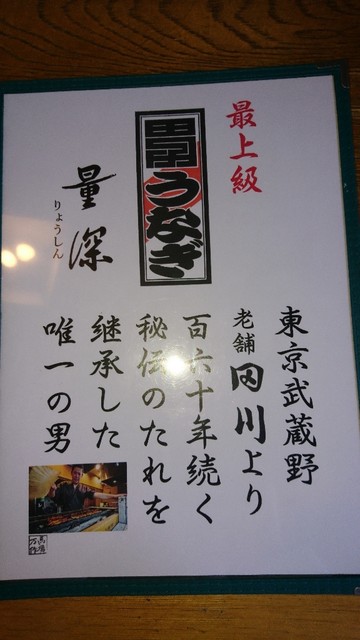 最上級
男うなぎ
量深
りょうしん
東京武蔵野
老舗田川より
百六十年続く
秘伝のたれを
継承した
唯一の男